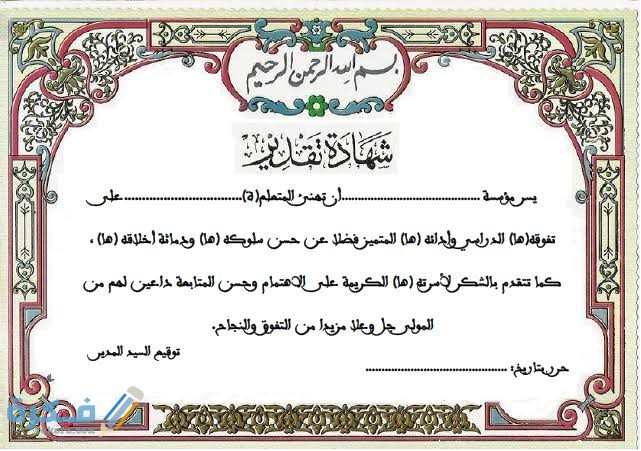 بسم الله الرحمن الرحيم
شهادة تقدير
يسر مؤسسة ............................................أن تهنئ المتعلم(ة)...................................... على
تفوقه(ها) الدراسي وأدائه (ها) المتميز فضلا عن حسن سلوكه (ها) ودماثة أخلاقه (ها) ،
كما تتقدم بالشكر لأسرته (ها) الكريمة على الاهتمام وحسن المتابعة داعين لهم من
المولى جل وعلا مزيدا من التفوق والنجاح.
توقيع السيد المدير
حرر بتاريخ: .............................................
فكرة